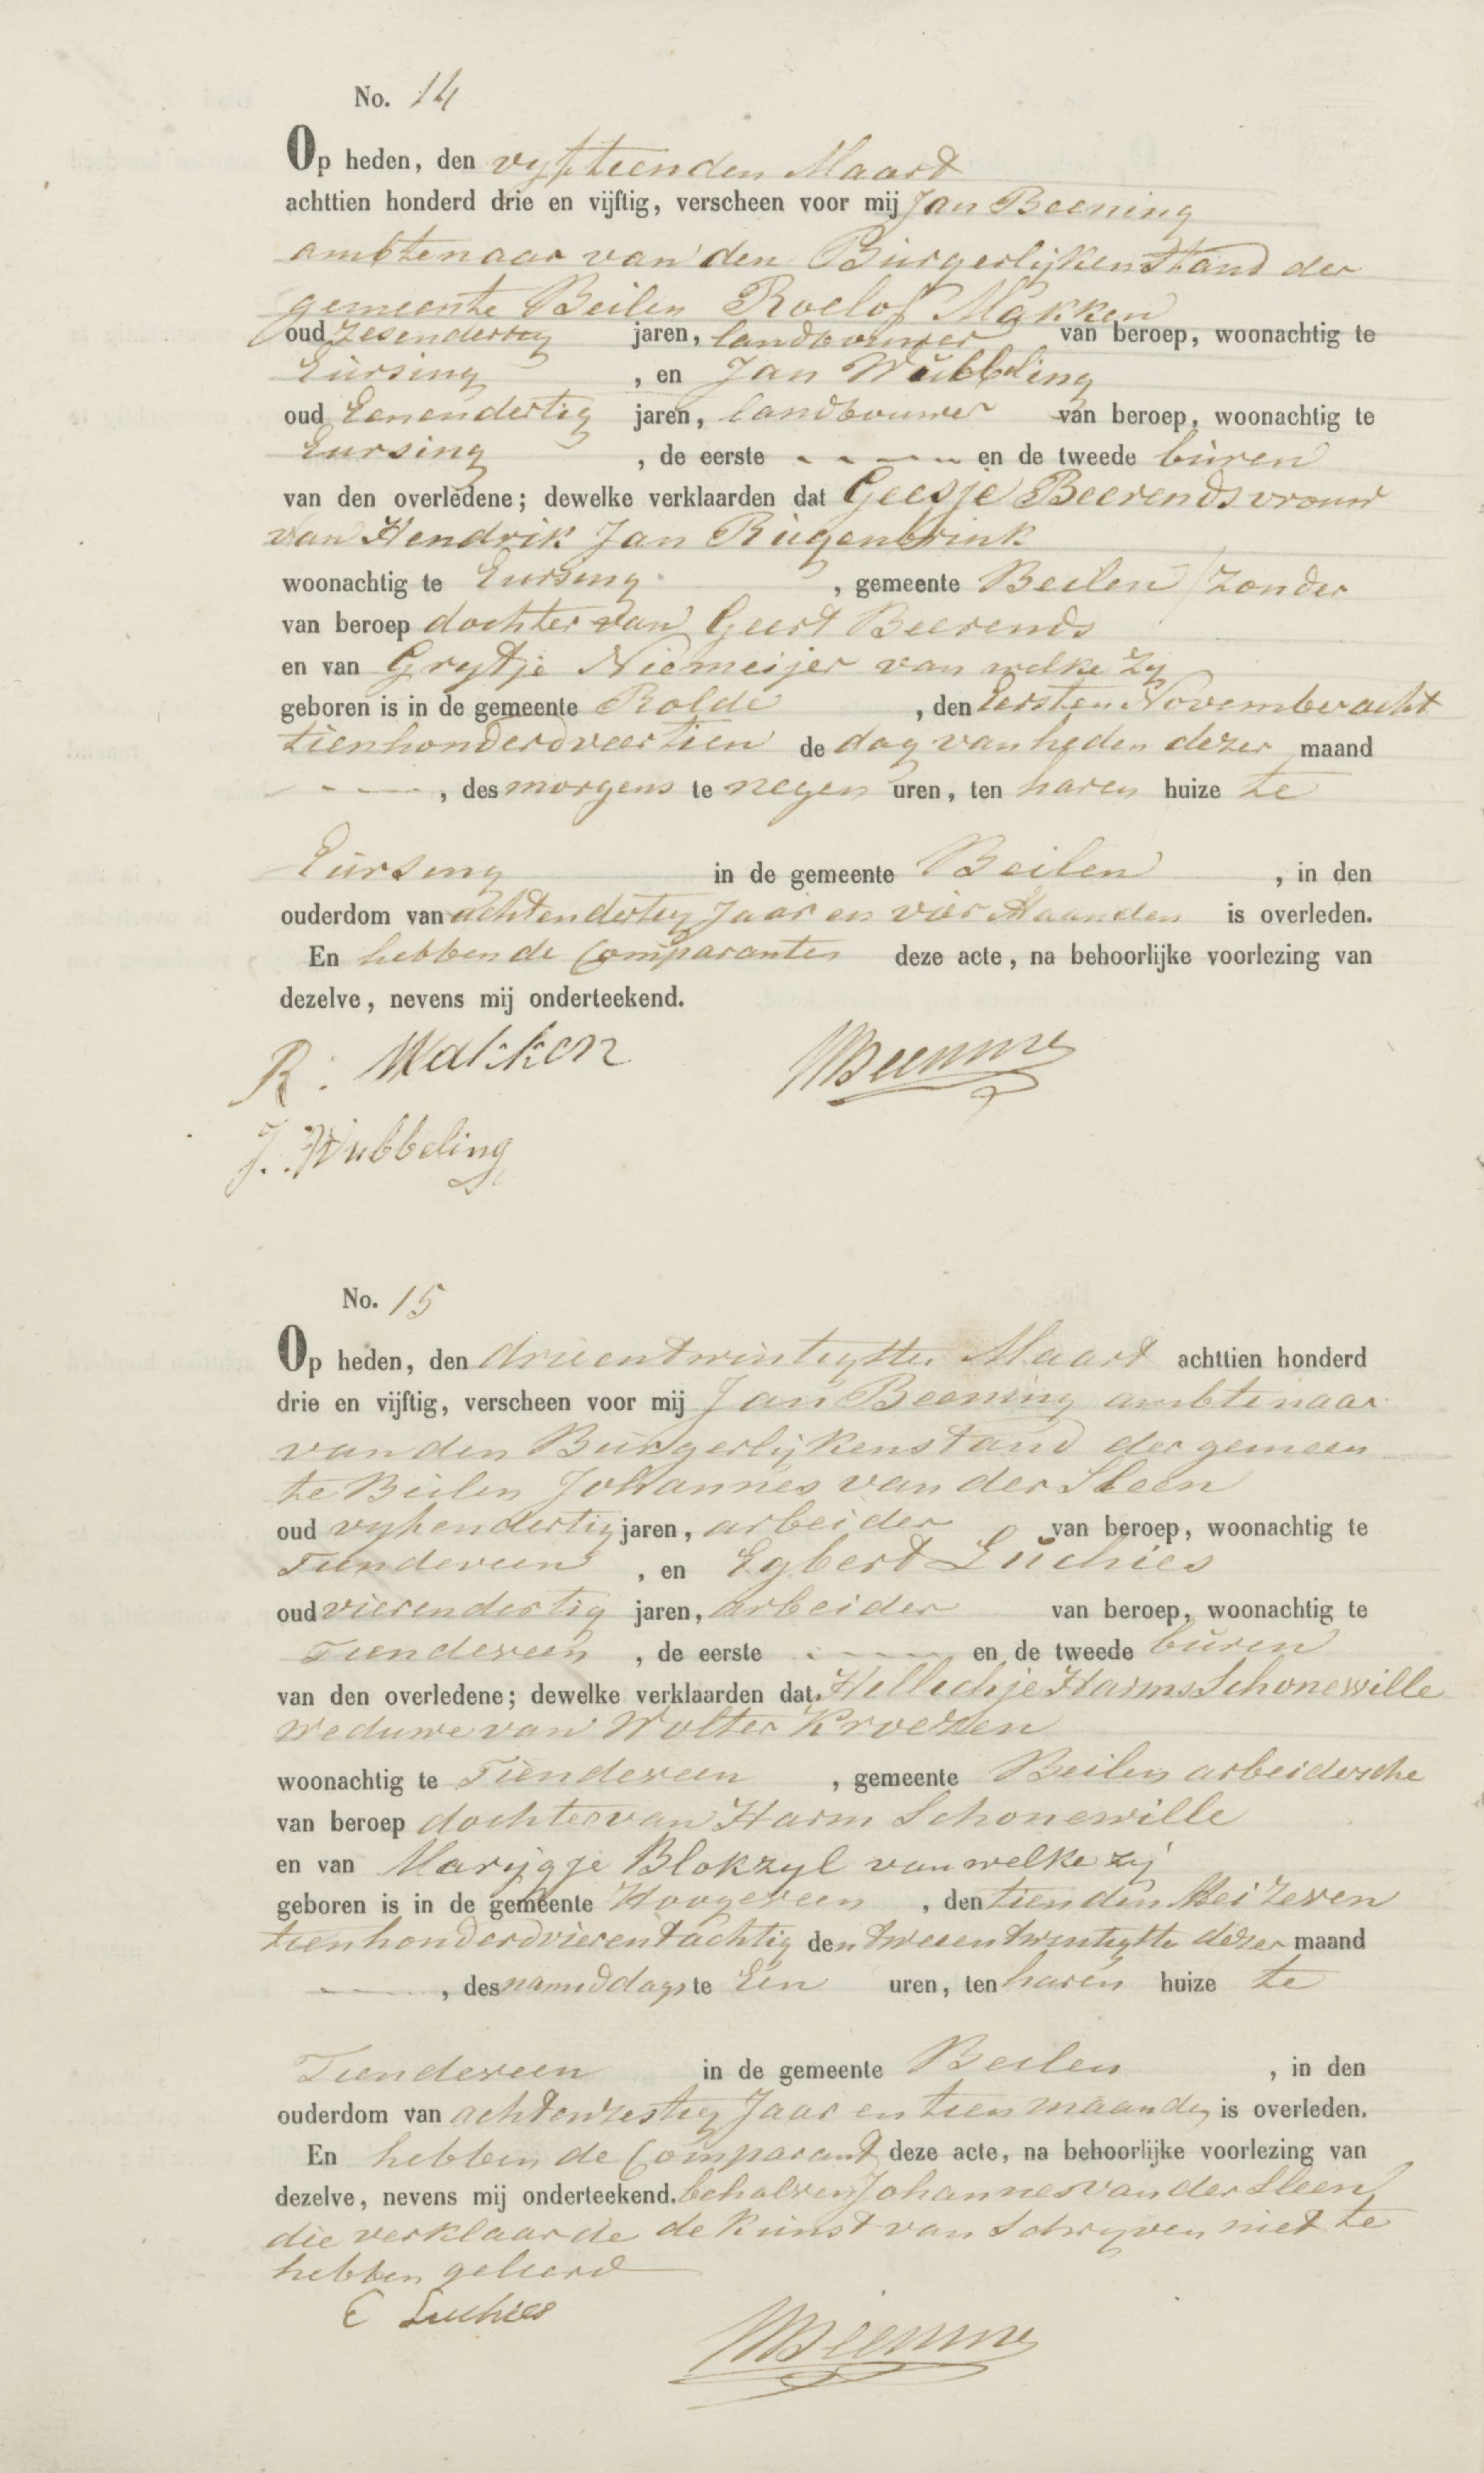 No. 14
Op heden, den vyftienden Maart
achttien honderd drie en vijftig, verscheen voor mij Jan Beening
ambtenaar van den Burgerlijken Stand der
gemeente Beilen Roelof Makken
oud zesendertig jaren, landbouwer van beroep, woonachtig te
Eursing, en Jan Wubbeling
oud Eenendertig jaren, landbouwer van beroep, woonachtig te
Eursing, de eerste - - - - en de tweede buren
van den overledene; dewelke verklaarden dat Geesje Beerends vrouw
van Hendrik Jan Rugenbrink
woonachtig te Eursing, gemeente Beilen / zonder
van beroep dochter van Geert Beerends
en van Grytje Niemeijer van welke zy
geboren is in de gemeente Rolde, den Eersten November acht
tienhonderdveertien de dag van heden dezer maand
- - -, des morgens te negen uren, ten haren huize te
Eursing in de gemeente Beilen, in den
ouderdom van achtendertig Jaar en vier Maanden is overleden.
En hebben de Comparanten deze acte, na behoorlijke voorlezing van
dezelve, nevens mij onderteekend.
R: Makken JBeening
J. Wubbeling
No. 15
Op heden, den drieentwintigsten Maart achttien honderd
drie en vijftig, verscheen voor mij Jan Beening ambtenaar
van den Burgerlijkenstand der gemeen
te Beilen Johannes van der Sleen
oud vyfendertig jaren, arbeider van beroep, woonachtig te
Tiendeveen, en Egbert Luchies
oud vierendertig jaren, arbeider van beroep, woonachtig te
Tiendeveen, de eerste - - - - en de tweede buren
van den overledene; dewelke verklaarden dat Hillechje Harms Schonewille
weduwe van Wolter Kroezen
woonachtig te Tiendeveen, gemeente Beilen arbeidersche
van beroep dochter van Harm Schonewille
en van Marijgje Blokzyl van welke zij
geboren is in de gemeente Hoogeveen, den tienden Mei zeven
tienhonderdvierentachtig den tweeentwintigste dezer maand
- -, des namiddags te Een uren, ten haren huize te
Tiendeveen in de gemeente Beilen, in den
ouderdom van achtenzestig Jaar en tien maanden is overleden.
En hebben de Comparant deze acte, na behoorlijke voorlezing van
dezelve, nevens mij onderteekend. behalven Johannes van der Sleen
die verklaarde de kunst van Schryven niet te
hebben geleerd
E Luchies
JBeening